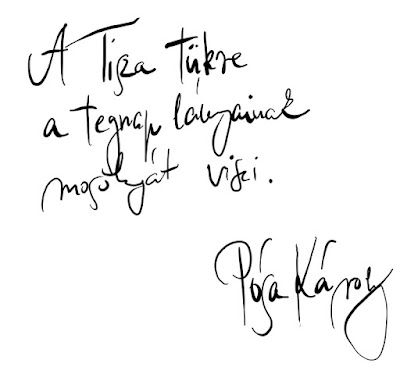 A Tisza tükre
a tegnap lányainak
mosolyát viszi.
Pósa Károly